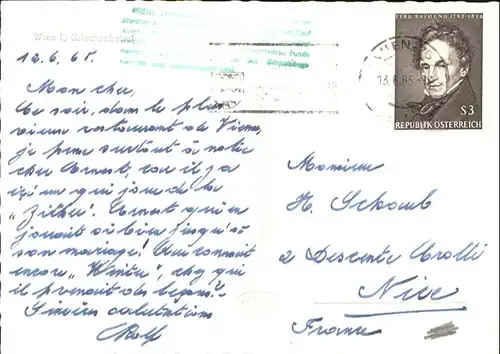 Wien I, Griechenbeisl
12.6.65.
Mon cher,
Ce soir, dans le plus
vieux restaurant de Vienne,
je pense surtout à notre
cher Ernest, car il y a
ici un qui joue de la
„Zither“. Ernest qui en
jouait si bien jusqu'à
son mariage! On connait
encore „Winter“, chez qui
il prenait des leçons?
Sincères salutations
Rolf
FERD. RAIMUND 1790-1836
WIEN
13.6.65-
S3
REPUBLIK ÖSTERREICH
Monsieur
H. Schomb
2 Descente Crotti
Nice
France